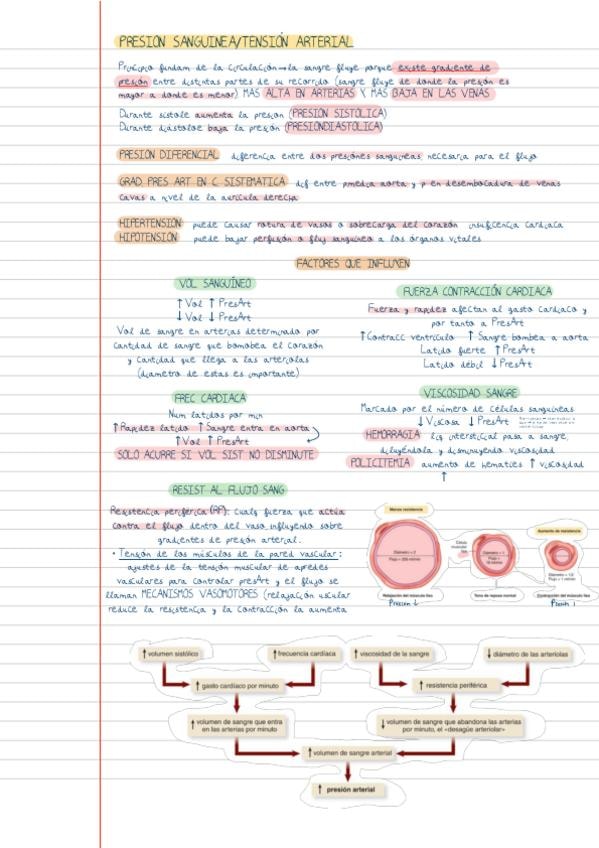 PRESION SANGUINEA/TENSIÓN ARTERIAL
Principio fundam de la circulación→la sangre fluye porque existe gradiente de
presión entre distintas partes de su recorrido (sangre fluye de donde la presión es
mayor a donde es menor) MAS ALTA EN ARTERIAS Y MAS BAJA EN LAS VENAS
Durante sístole aumenta la presion (PRESIÓN SISTÓLICA)
Durante diástoloe baja la presión (PRESIÓNDIASTÓLICA)
PRESIÓN DIFERENCIAL diferencia entre dos presiónes sanguíneas necesaria para el flujo
GRAD. PRES ART EN C. SISTEMATICA dif entre pmedia aorta y p en desembocadura de venas
cavas a nivel de la aurícula derecha
HIPERTENSIÓN puede causar rotura de vasos o sobrecarga del corazón insuficencia cardiaca
HIPOTENSIÓN puede bajar perfusión o fluj sanguíneo a los órganos vitales
FACTORES QUE INFLUYEN
VOL SANGUÍNEO
↑Vol ↑ PresArt
↓Vol ↓ PresArt
Vol de sangre en arterias determinado por
cantidad de sangre que bomobea el corazón
y cantidad que llega a las arteriolas
(diametro de estas es importante)
FUERZA CONTRACCIÓN CARDIACA
Fuerza y rapidez afectan al gasto cardiaco y
por tanto a PresArt
↑Contracc ventrículo ↑ Sangre bombea a aorta
Latido fuerte ↑PresArt
Latido débil ↓PresArt
FREC CARDIACA
Num latidos por min
↑Rapidez latido ↑Sangre entra en aorta
↑Vol ↑ PresArt
SOLO ACURRE SI VOL SIST NO DISMINUTE
VISCOSIDAD SANGRE
Marcado por el número de células sanguíneas
↓Viscosa ↓ PresArt
HEMORRAGIA liq intersticial pasa a sangre,
diluyéndola y disminuyendo viscosidad
POLICITEMIA aumento de hematíes ↑ viscosidad
↑
RESIST AL FLUJO SANG
Resistencia periférica (RP): cualq fuerza que actúa
contra el flujo dentro del vaso influyendo sobre
gradientes de presión arterial.
• Tensión de los músculos de la pared vascular:
ajustes de la tensión muscular de apredes
vasculares para controlar presArt y el flujo se
llaman MECANISMOS VASOMOTORES (relajación uscular
reduce la resistencia y la contracción la aumenta
Menos resistencia
Diámetro = 2
Relajación del músculo liso
Presión ↓
Célula muscular lisa
Diámetro = 1
Tono de reposo normal
Aumento de resistencia
Contracción del músculo liso
Presión ↑
↑ volumen sistólico
↑ frecuencia cardíaca
↑ viscosidad de la sangre
↓ diámetro de las arteriolas
↑ gasto cardíaco por minuto
↑ resistencia periférica
↑ volumen de sangre que entra
en las arterias por minuto
↓ volumen de sangre que abandona las arterias
por minuto, el «desagüe arteriolar»
↑ volumen de sangre arterial
↑ presión arterial